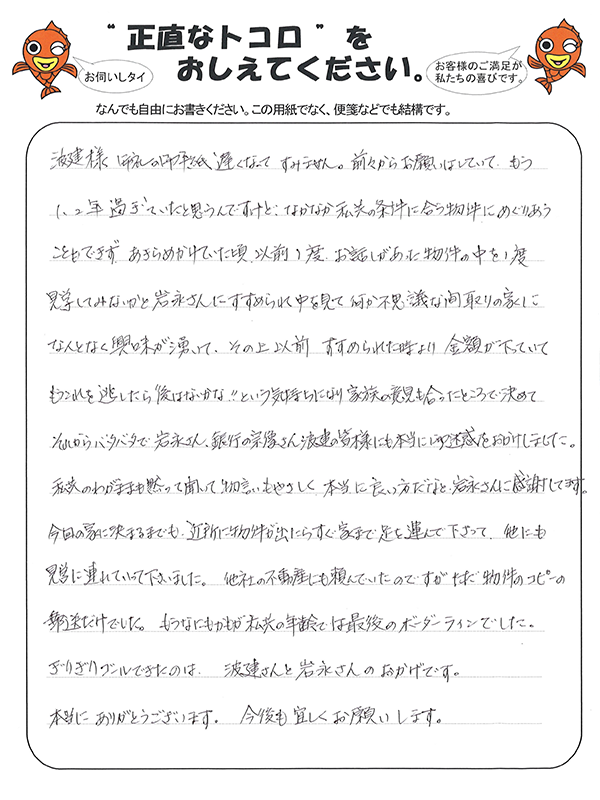 “正直なトコロ”を
おしえてください。
お伺いしタイ
お客様のご満足が
私たちの喜びです。
なんでも自由にお書きください。この用紙でなく、便箋などでも結構です。
波建様 御礼の御手紙 遅くなって すみません。前々からお願いはしていて、もう
1、2年過ぎていたと思うんですけど、なかなか私共の条件に合う物件にめぐりあう
こともできず、あきらめかけていた頃、以前1度、お話しがあった物件の中を1度
見学してみないかと岩永さんにすすめられ中を見て何か不思議な間取りの家に
なんとなく興味が湧いて、その上以前 すすめられた時より 金額が下っていて
もうこれを逃したら後はないかな!!という気持ちになり家族の意見も合ったところで決めて
それからバタバタで岩永さん、銀行の宗像さん波建の皆様にも本当に御迷惑をおかけしました。
私共のわがままも黙って聞いて物言いもやさしく本当に良い方だなと、岩永さんに感謝してます。
今回の家に決まるまでも、近所に物件が出たらすぐ家まで足を運んで下さって、他にも
見学に連れていって下さいました。 他社の不動産にも頼んでいたのですがただ物件のコピーの
郵送だけでした。 もうなにもかもが私共の年齢では最後のボーダーラインでした。
ぎりぎりゴールできたのは、 波建さんと岩永さんのおかげです。
本当に ありがとうございます。 今後も宜しくお願いします。